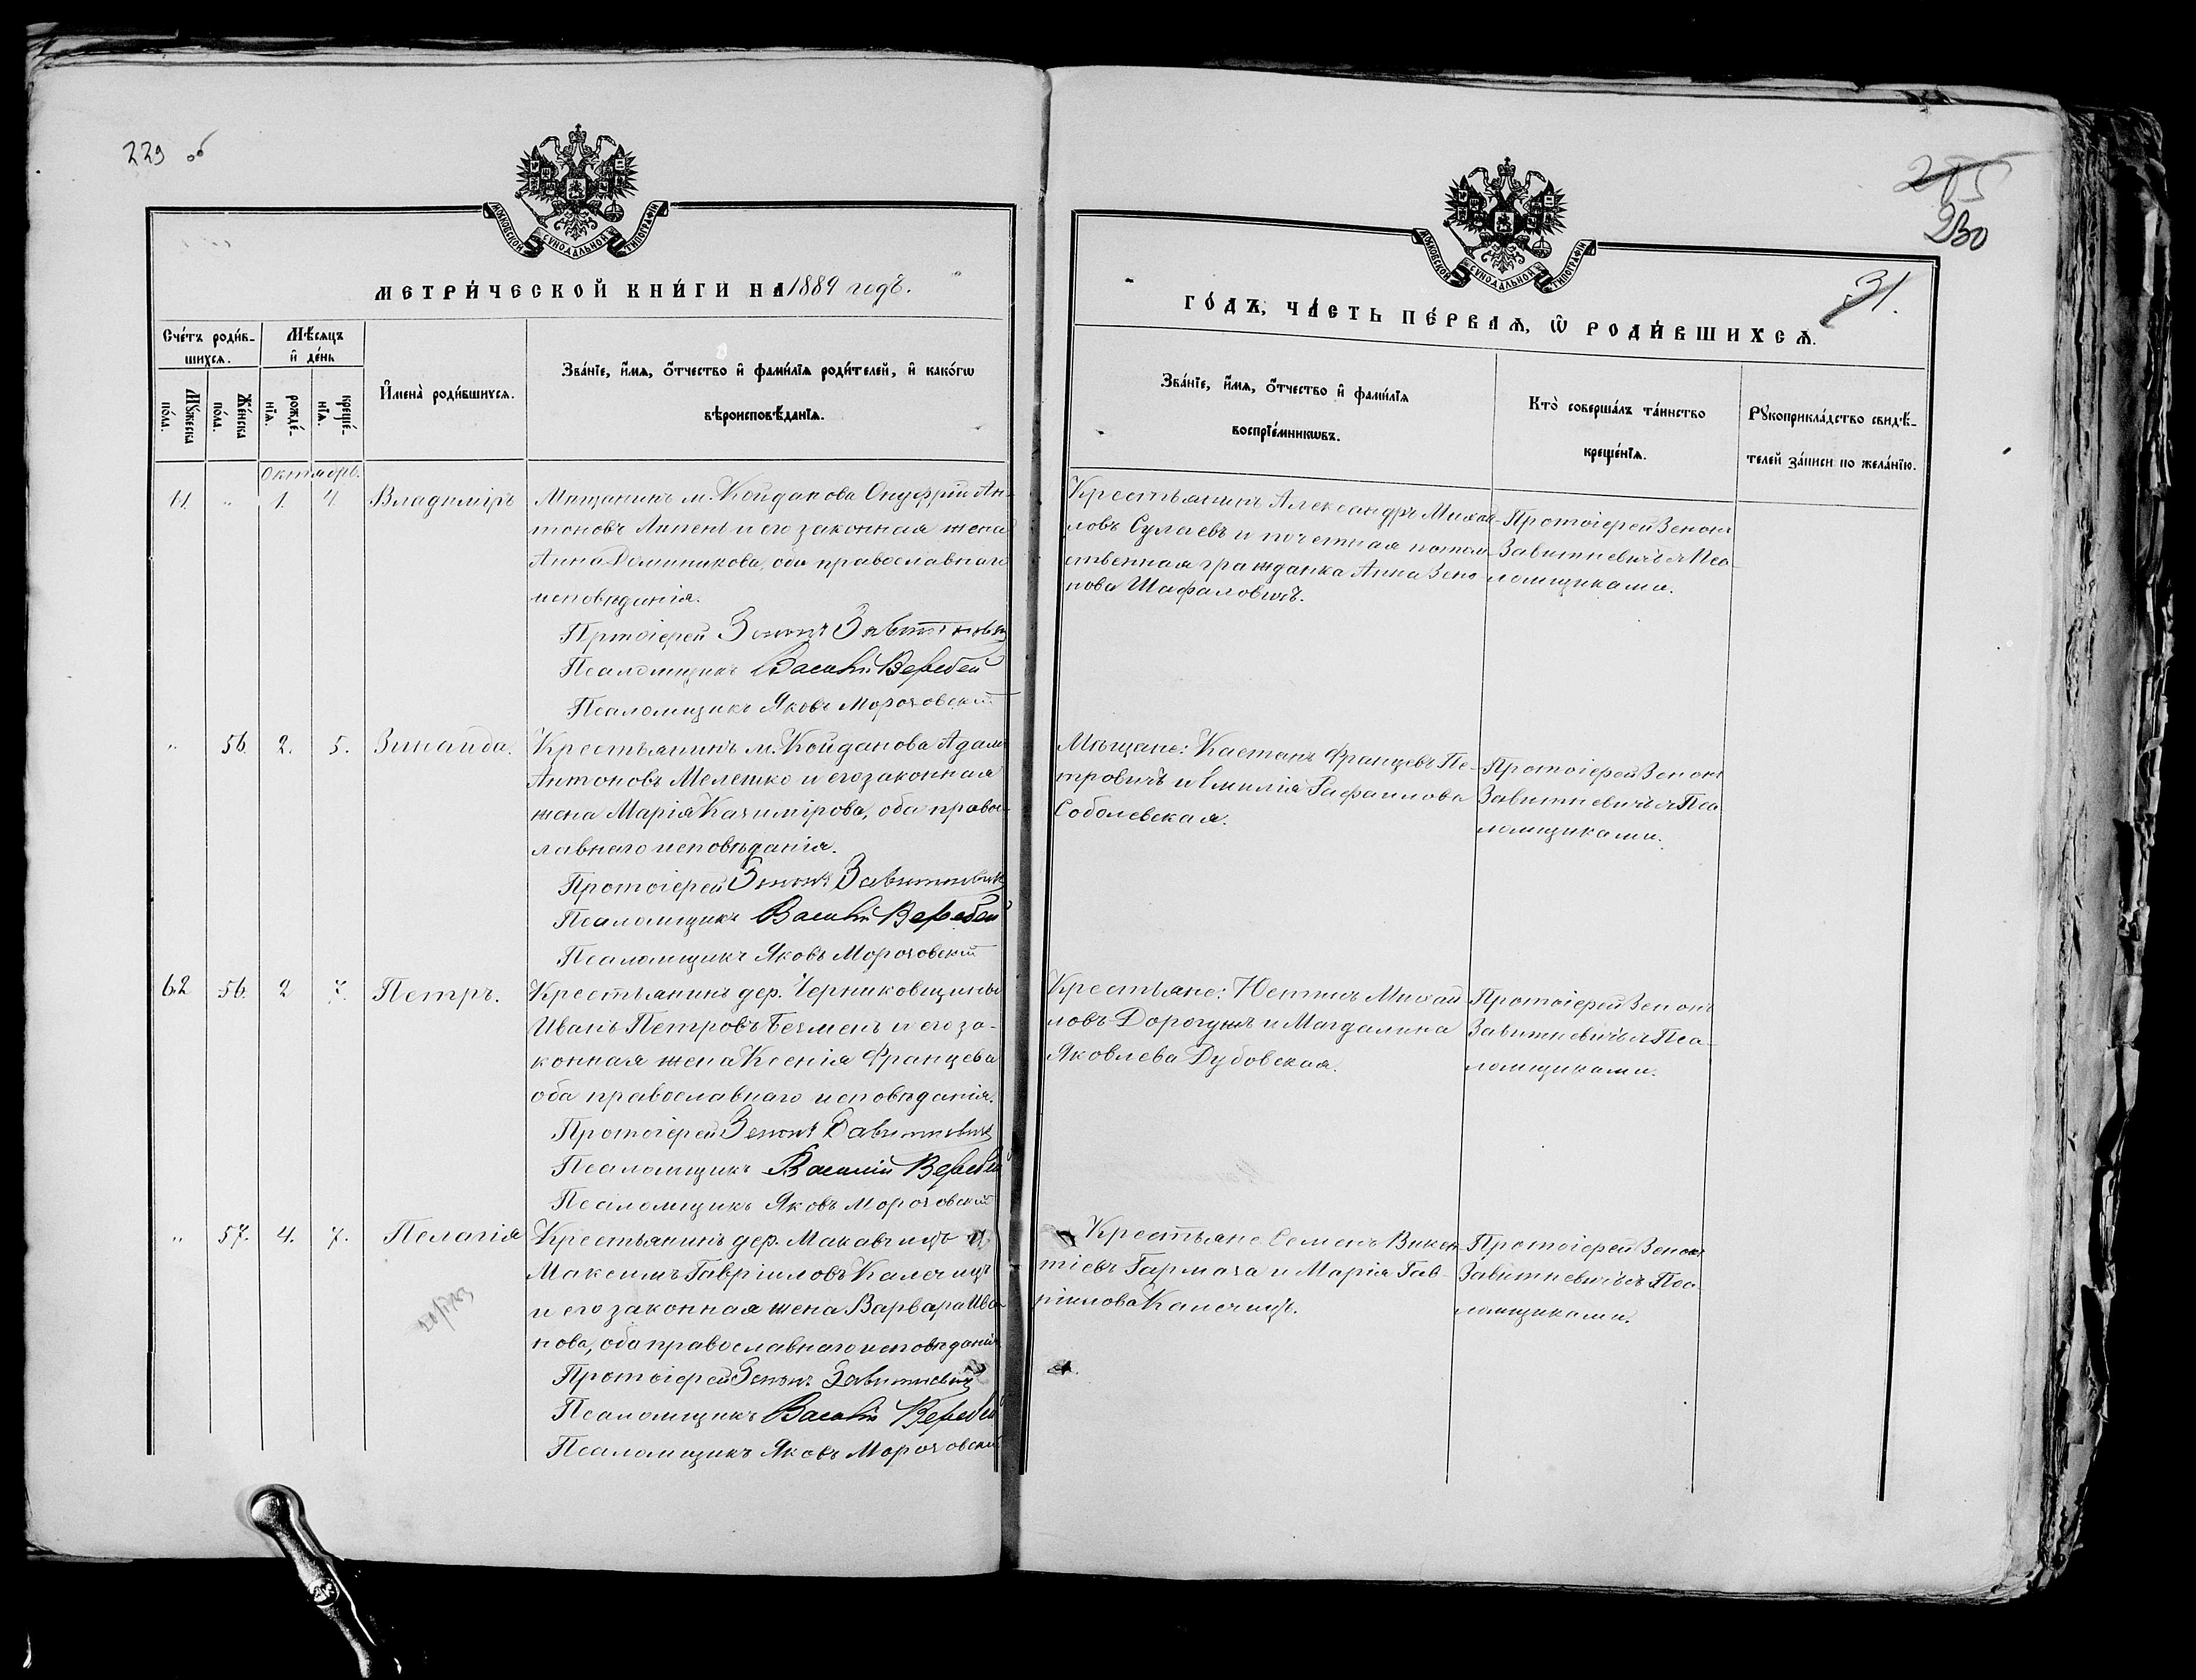 229 об
МОСКОВСКОЙ СѴНОДАЛЬНОЙ ТИПОГРАФІИ
МЕТРИ́ЧЕСКОЙ КНИ́ГИ НА 1889 годъ.
Сче́тъ роди́в-
шихсѧ.
Мѣ́сѧцъ
и҆ де́нь
Мꙋ́жеска
по́ла.
Же́нска
по́ла.
рожде́-
нїѧ.
креще́-
нїѧ.
И҆мена̀ роди́вшихсѧ.
Зва́нїе, и҆́мѧ, ѻ҆́тчество и҆ фами́лїѧ роди́телей, и҆ како́гѡ
вѣроисповѣ́данїѧ.
Октябрь.
61. " 1. 4. Владиміръ
Мѣщанинъ м. Койданова Онуфрій Ан-
тоновъ и его законная жена
Анна Доминикова, оба православнаго
исповѣданія.
Протоіерей Зенонъ Завитневичъ
Псаломщикъ Василій Веребей
Псаломщикъ Яковъ Морозовскій
" 56. 2. 5. Зинаида.
Крестьянинъ м. Койданова Адамъ
Антоновъ Мелешко и его законная
жена Марія Казимірова, оба правос-
лавнаго исповѣданія.
Протоіерей Зенонъ Завитневичъ
Псаломщикъ Василій Веребей
Псаломщикъ Яковъ Морозовскій
62 56. 2 7. Петръ.
Крестьянинъ дер. Черниковщины
Иванъ Петровъ Безменъ и его за-
конная жена Ксенія Францева
оба православнаго исповѣданія.
Протоіерей Зенонъ Завитневичъ
Псаломщикъ Василій Веребей
Псаломщикъ Яковъ Морозовскій
" 57. 4. 7. Пелагія
Крестьянинъ дер. Макавчицъ
Максимъ Гавріиловъ Калечицъ
и его законная жена Варвара Ива-
нова, оба православнаго исповѣданія
Протоіерей Зенонъ Завитневичъ
Псаломщикъ Василій Веребей
Псаломщикъ Яковъ Морозовскій
230
31.
МОСКОВСКОЙ СѴНОДАЛЬНОЙ ТИПОГРАФІИ
ГО́ДЪ, ЧА́СТЬ ПЕ́РВАѦ, Ѡ҆ РОДИ́ВШИХСѦ.
Зва́нїе, и҆́мѧ, ѻ҆́тчество и҆ фами́лїѧ
воспрїе́мникѡвъ.
Кто̀ соверша́лъ та́инство
креще́нїѧ.
Рꙋкоприкла́дство свидѣ́-
телей за́писи по жела́нїю.
Крестьянинъ Александръ Михай-
ловъ Сулаевъ и почетная потом-
ственная гражданка Анна Зено-
нова Шафаловичъ.
Протоіерей Зенонъ
Завитневичъ съ Пса-
ломщиками.
Мѣщане: Каетанъ Францевъ Пе-
тровичъ и Емилія Рафаилова
Соболевская.
Протоіерей Зенонъ
Завитневичъ съ Пса-
ломщиками.
Крестьяне: Юстинъ Михай-
ловъ и Магдалина
Яковлева Дубовская.
Протоіерей Зенонъ
Завитневичъ съ Пса-
ломщиками.
Крестьяне Семенъ Викен-
тіевъ Гармаза и Марія Гав-
ріилова Калечицъ.
Протоіерей Зенонъ
Завитневичъ съ Пса-
ломщиками.